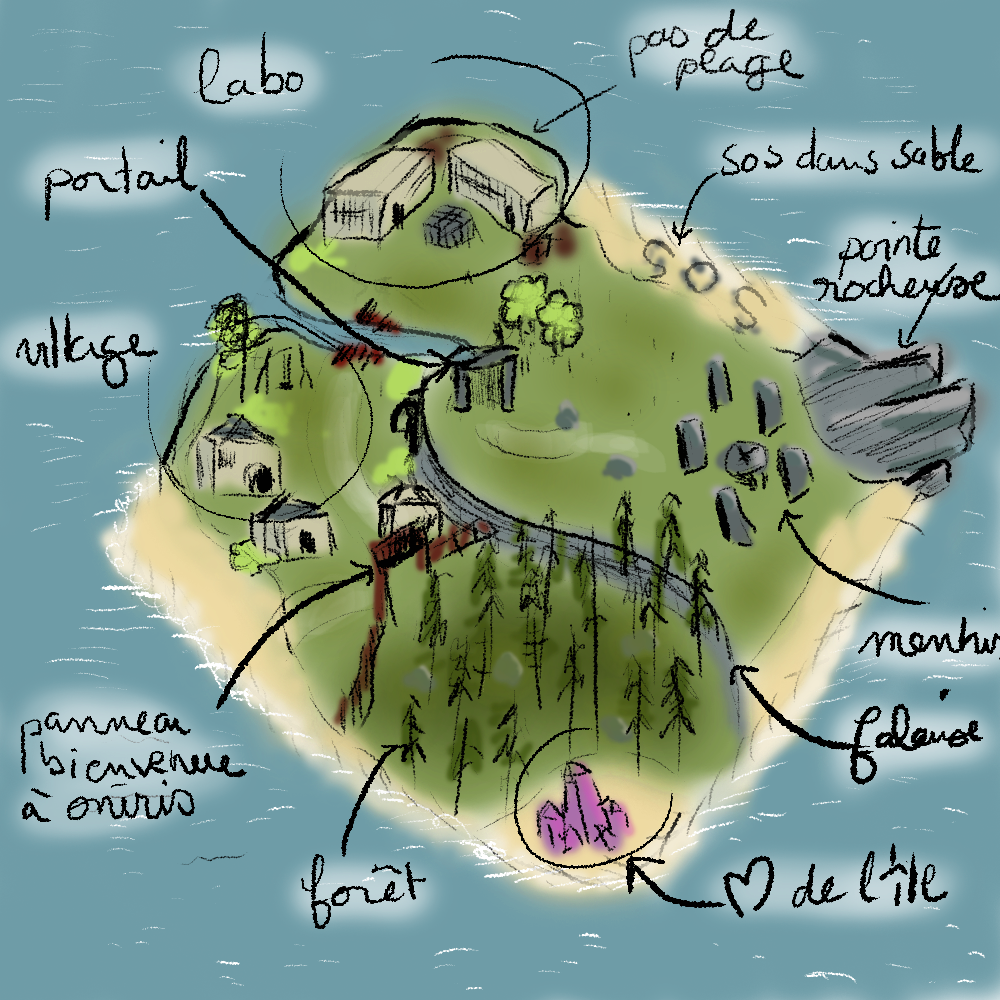 labo
pas de
plage
portail
sos dans sable
pointe
rocheuse
village
SOS
menhirs
falaise
panneau
bienvenue
à oniris
forêt
♡ de l'île